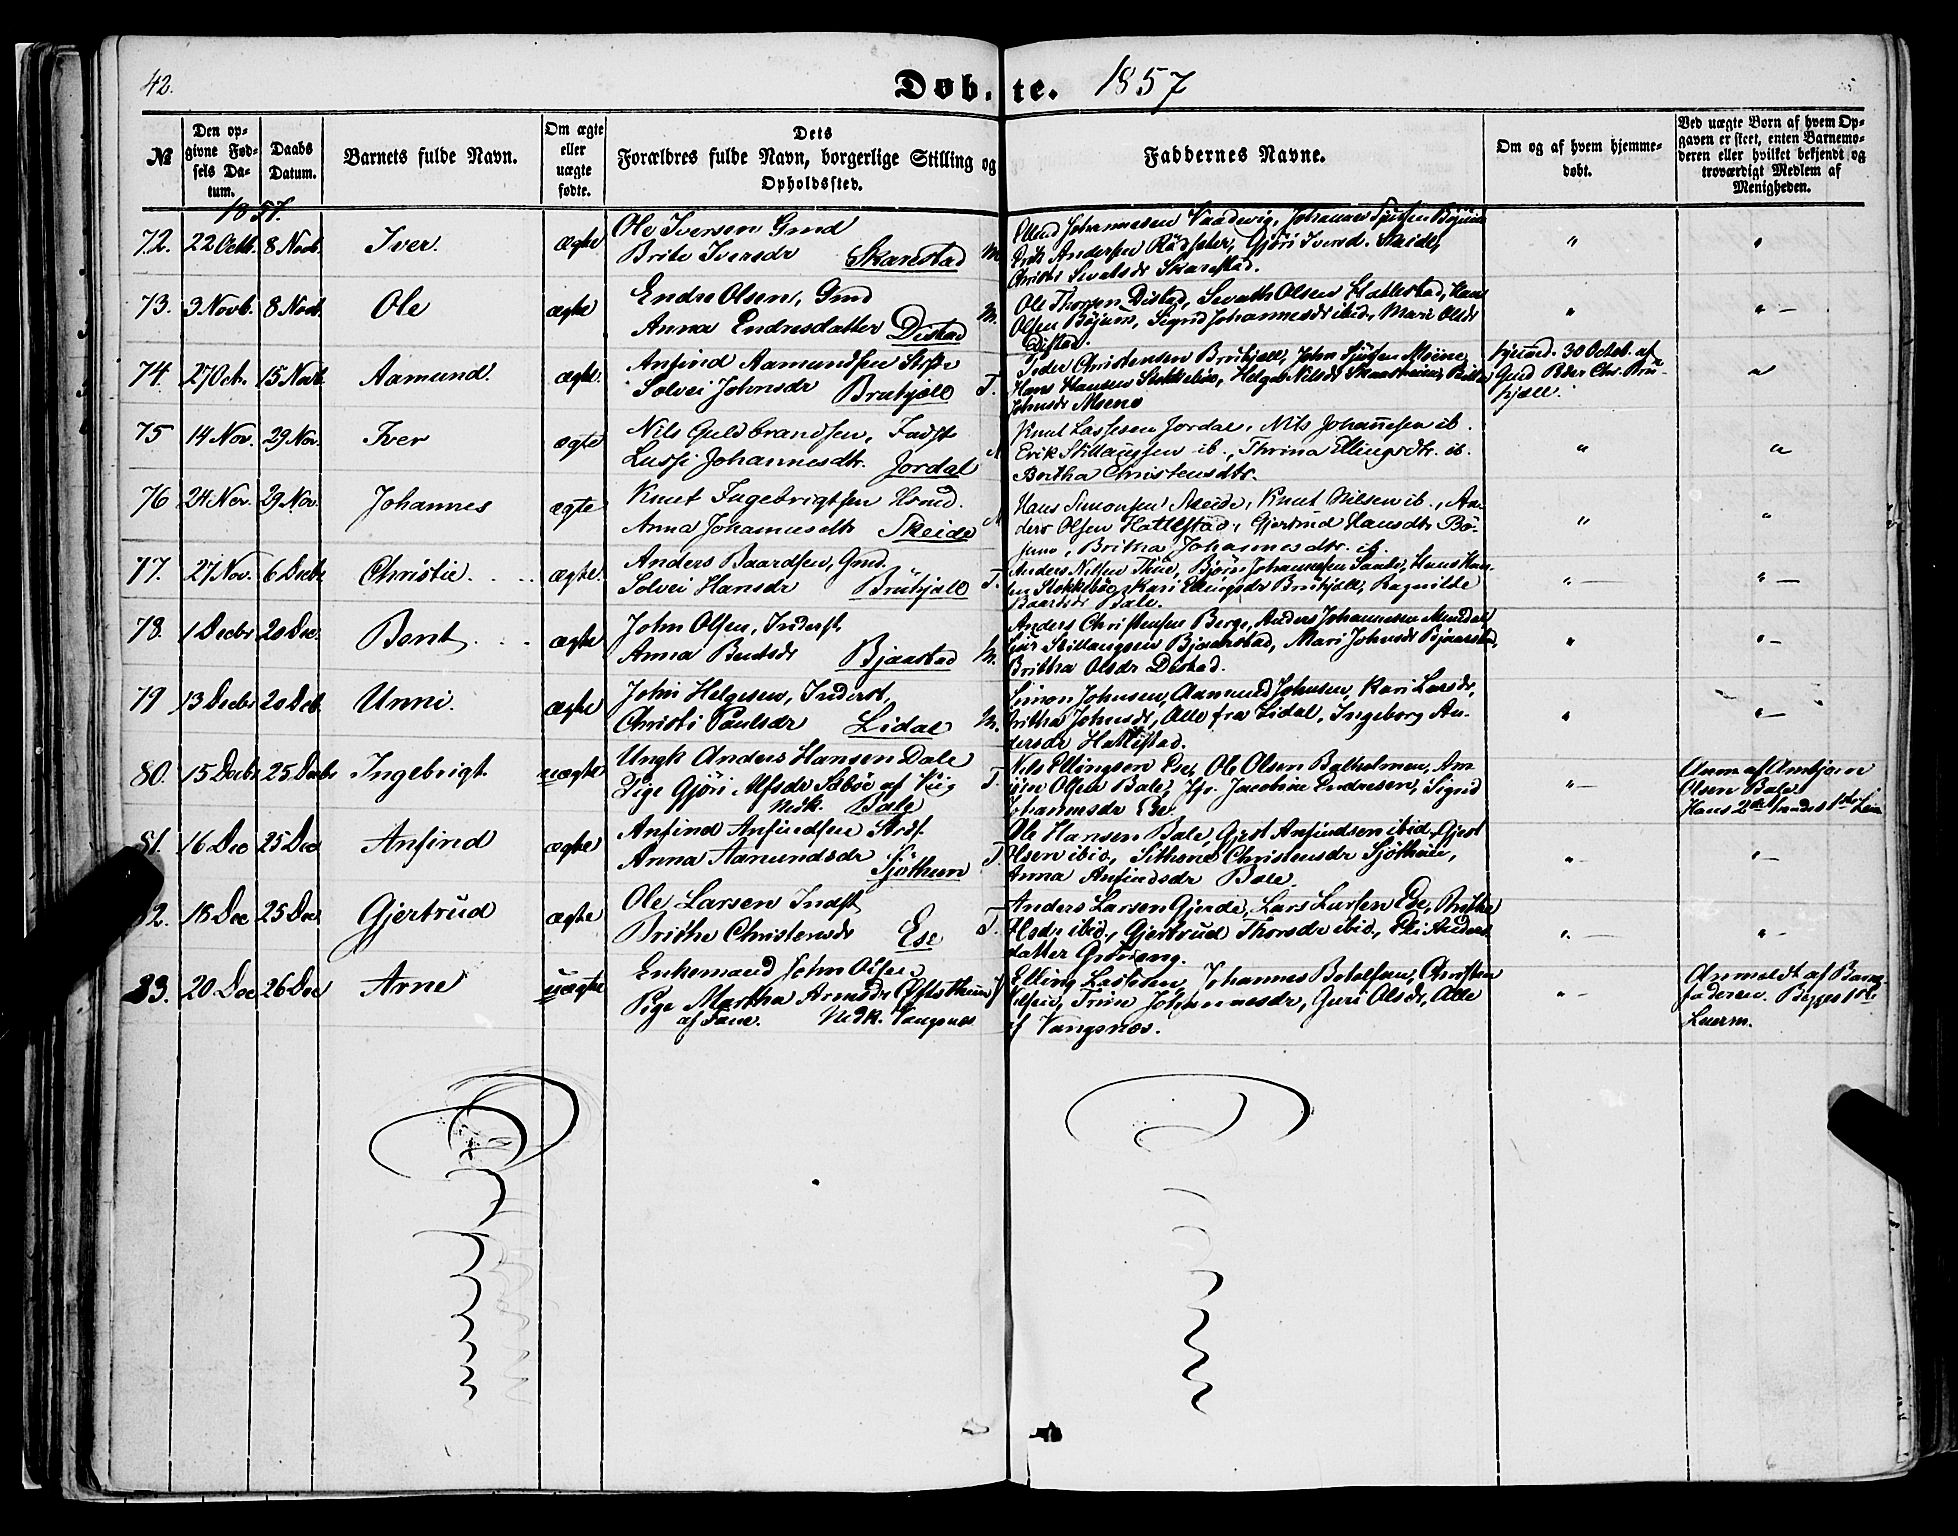 42.
Døb- te. 1857
№
Den op-
givne Fød-
sels Da-
tum.
Daabs
Datum.
Barnets fulde Navn.
Om ægte
eller
uægte
fødte.
Dets
Forældres fulde Navn, borgerlige Stilling og
Opholdssted.
Faddernes Navne.
Om og af hvem hjemme-
døbt.
Ved uægte Børn af hvem Op-
gaven er skeet, enten Barnemo-
deren eller hvilket bekjendt og
troværdigt Medlem af
Menigheden.
1857.
72. 22 Octb. 8 Novb. Iver. ægte
Ole Iversen Gmd
Brite Iversdr Skarestad M
Ellend Johannesen Vaadevig, Johannes
Erik Andersen Rødseter, Gjøri Iversd. Skeide,
Christi Sevatsdr Skarestad.
" "
73. 3 Novb. 8 Novb. Ole ægte
Endre Olsen, Gmd
Anna Endresdatter Distad M.
Ole Thorsen Distad, Sevath Olsen Hatlestad, Hans
Olsen Bøjum, Sigrid Johannesdr ibid, Mari Olsdr
Distad.
" " -
74. 27 Oct. 15 Novb. Aamund. ægte.
Anfind Aamundsen
Solvei Johnsdr Bruhjeld T.
Peder Christensen Bruhjeld, John
Hans Hansen Stokkebøe, Helge Nilsdr
Johnsdr
hjemd. 30 Octob. af
Gmd Peder Chr. Bru-
hjeld.
"
75 14 Nov. 29 Nov. Iver ægte
Nils Guldbrandsen, Fadst
Lussi Johannesdtr. Jordal M
Knut Lassesen Jordal, Nils Johannesen ib.
Erik Stillaugsen ib., Thrina Ellingsdtr. ib.
Bertha Christensdtr.
" "
76 24 Nov. 29 Nov. Johannes ægte
Knut Ingebrigtsen
Anna Johannesdtr Skeide M
Hans Simonsen Skeide, Knut Nilsen ib., An-
ders Olsen Hatlestad, Gjertrud Hansdtr. Bø-
jum, Britha Johannesdtr. ib.
" "
77. 27 Nov. 6 Decbr Christie. . . . ægte.
Anders Baardsen, Gmd.
Solvei Hansdr Bruhjeld T.
Anders Nilsen Thue, Bjørn Johannesen Hans Han-
sen Stokkebøe, Kari Ellingsdr Bruhjeld, Ragnilde
Baardsdr Bale.
" - " -
78. 1 Decbr 20 Dec. Bent . . . ægte
John Olsen, Inderst,
Anna Bentsdr Bjaastad M.
Anders Christensen Berge, Anders Johannesen Mundal
Stillaugsen Bjaastad, Mari Johnsdr Bjaastad
Britha Olsdr Distad.
" " -
79 13 Decbr 20 Decb. Unni. ægte
John Helgesen, Inderst,
Christi Paulsdr Lidal M.
Simon Johnsen, Aamund Johnsen, Kari Larsdr,
Britha Johnsdr, Alle fra Lidal, Ingeborg An-
dersdr Hatlestad.
" " -
80. 15 Decbr 25 Decbr Ingebrigt uægte
Ungk Anders Hansen Dale
Pige Gjøri Alfsdr Sæbøe af Viig
Nedk. Bale T.
Nils Ellingsen Ese, Ole Olsen Balholmen, Am-
bjørn Olsen Bale, Jfr. Jacobine Endresen, Sigrid
Johannesdr Ese.
" -
Anm af Ambjørn
Olsen Bale.
Hans 2de hendes 1ste
81. 16 Dec 25 Dec Anfind ægte
Anfind Anfindsen
Anna Aamundsdr Sjøthun T.
Ole Hansen Bale, Gjest Anfindsen ibid, Gjest
Olsen ibid, Sithene Christensdr Sjøthun,
Anna Anfindsdr Bale.
" - " -
82. 18 Dec 25 Dec Gjertrud ægte
Ole Larsen Indst
Brithe Christensdr Ese T.
Anders Larsen Gjerde, Lars Larsen Ese, Brithe
Olsdr ibid, Gjertrud Thorsdr ibid, Eli Anders
datter Grøneng.
" - " -
83. 20 Dec 26 Dec Arne uægte
Enkemand John Olsen
Pige Martha Arnesdr
af Nedk. Vangsnes
Elling Lassesen, Johannes Botolfsen, Christen
Nilsen, Trine Johannesdr, Guri Olsdr, Alle
af Vangsnes.
" -
Anmeldt af Barne
faderen. Begges 1ste
Leierm.